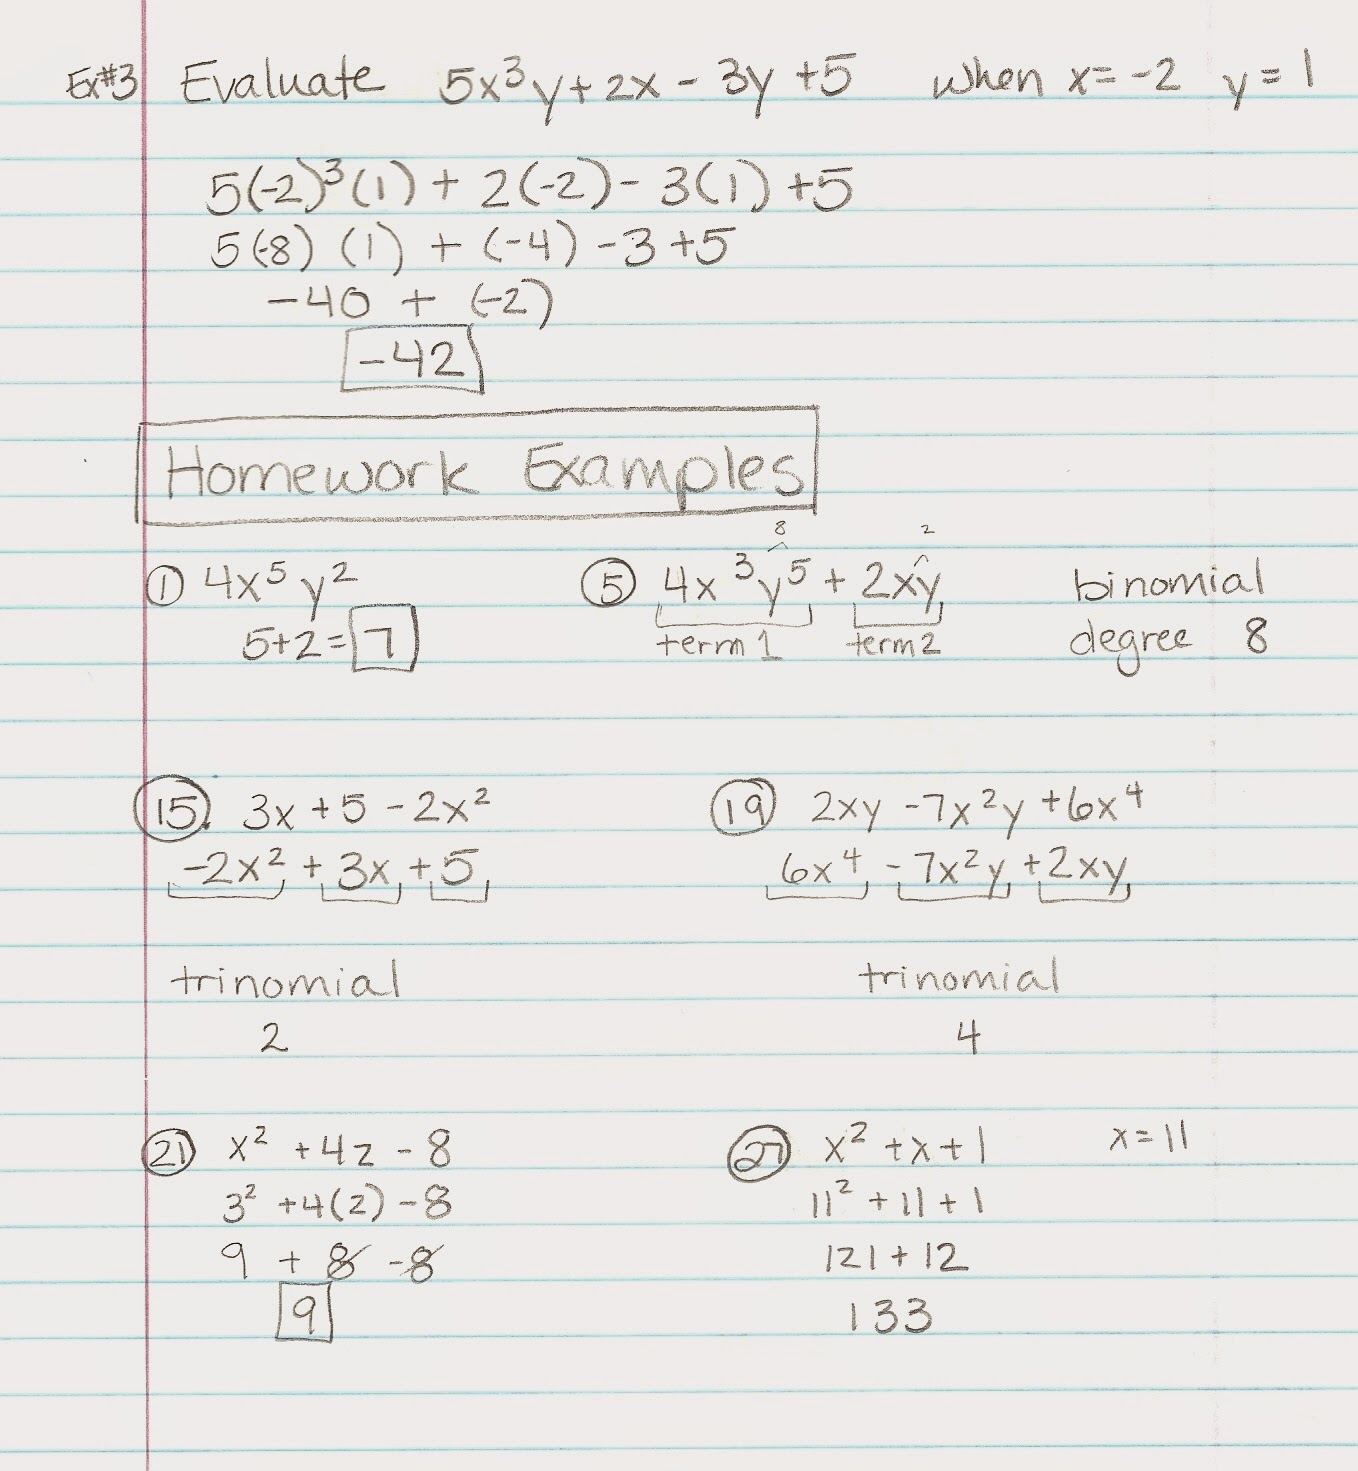 Ex#3 Evaluate 5x³y + 2x - 3y + 5 when x = -2 y = 1
5(-2)³(1) + 2(-2) - 3(1) + 5
5(-8) (1) + (-4) - 3 + 5
-40 + (-2)
-42
Homework Examples
8 2
① 4x⁵y²
5+2 = 7
⑤ 4x³y⁵ + 2xy binomial
term 1 term 2 degree 8
15. 3x + 5 - 2x²
-2x² + 3x + 5
trinomial
2
19 2xy - 7x²y + 6x⁴
6x⁴ - 7x²y + 2xy
trinomial
4
21 x² + 4z - 8
3² + 4(2) - 8
9 + 8 - 8
9
27 x² + x + 1 x = 11
11² + 11 + 1
121 + 12
133